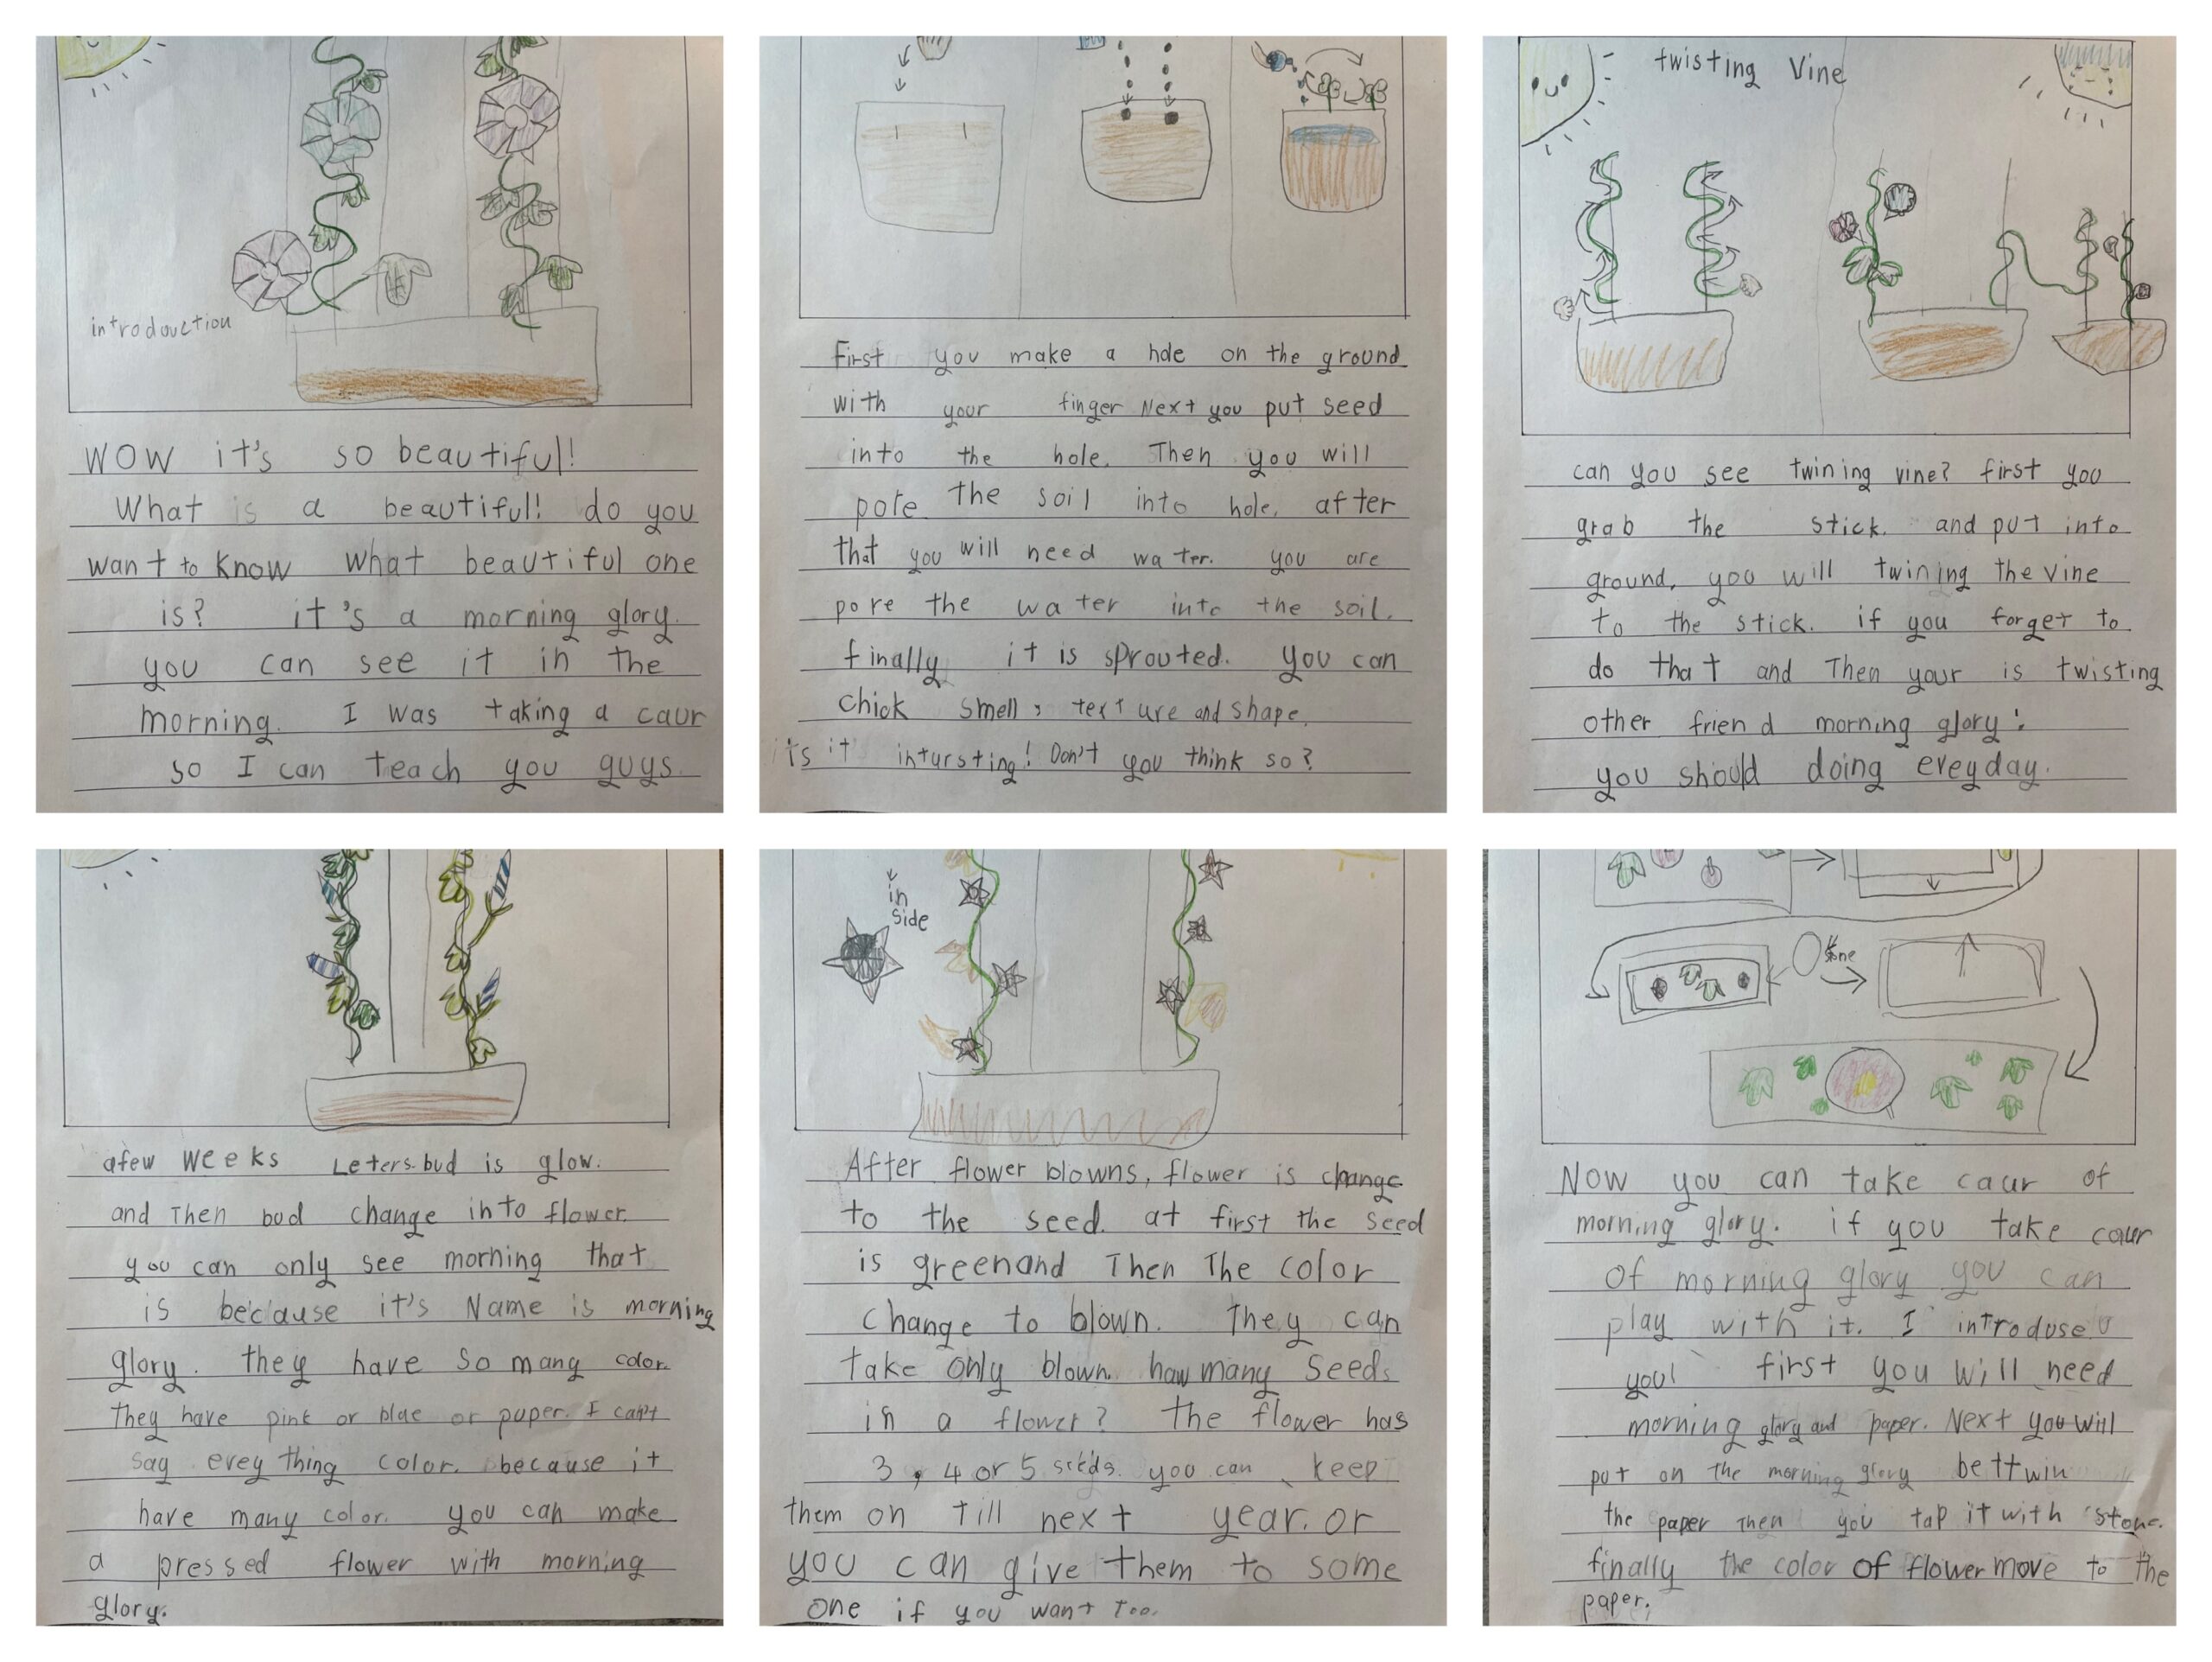 introdouction
WOW it's so beautiful!
What is a beautiful! do you
want to know what beautiful one
is? it's a morning glory.
you can see it in the
morning. I was taking a caur
so I can teach you guys.
First you make a hole on the ground
with your finger Next you put seed
into the hole. Then you will
pore the soil into hole. after
that you will need water. you are
pore the water into the soil.
finally it is sprouted. you can
chick smell, texture and shape.
its it intursting! Don't you think so?
twisting Vine
can you see twining vine? first you
grab the stick. and put into
ground. you will twining the vine
to the stick. if you forget to
do that and Then your is twisting
other friend morning glory.
you should doing eveyday.
afew weeks Leters bud is glow.
and Then bud change into flower.
you can only see morning that
is because it's Name is morning
glory. they have so many color.
They have pink or blue or puper. I can't
say evey thing color. because it
have many color. you can make
a pressed flower with morning
glory.
in
side
After flower blowns, flower is change
to the seed. at first the seed
is greenand Then The color
change to blown. They can
take only blown. how many seeds
in a flower? The flower has
3, 4 or 5 seeds. you can keep
them on till next year. or
you can give them to some
one if you want Too.
Now you can take caur of
morning glory. if you take caur
of morning glory you can
play with it. I introduse
you! first you will need
morning glory and paper. Next you will
put on the morning glory bettwin
the paper Then you tap it with stone.
finally the color of flower move to the
paper.